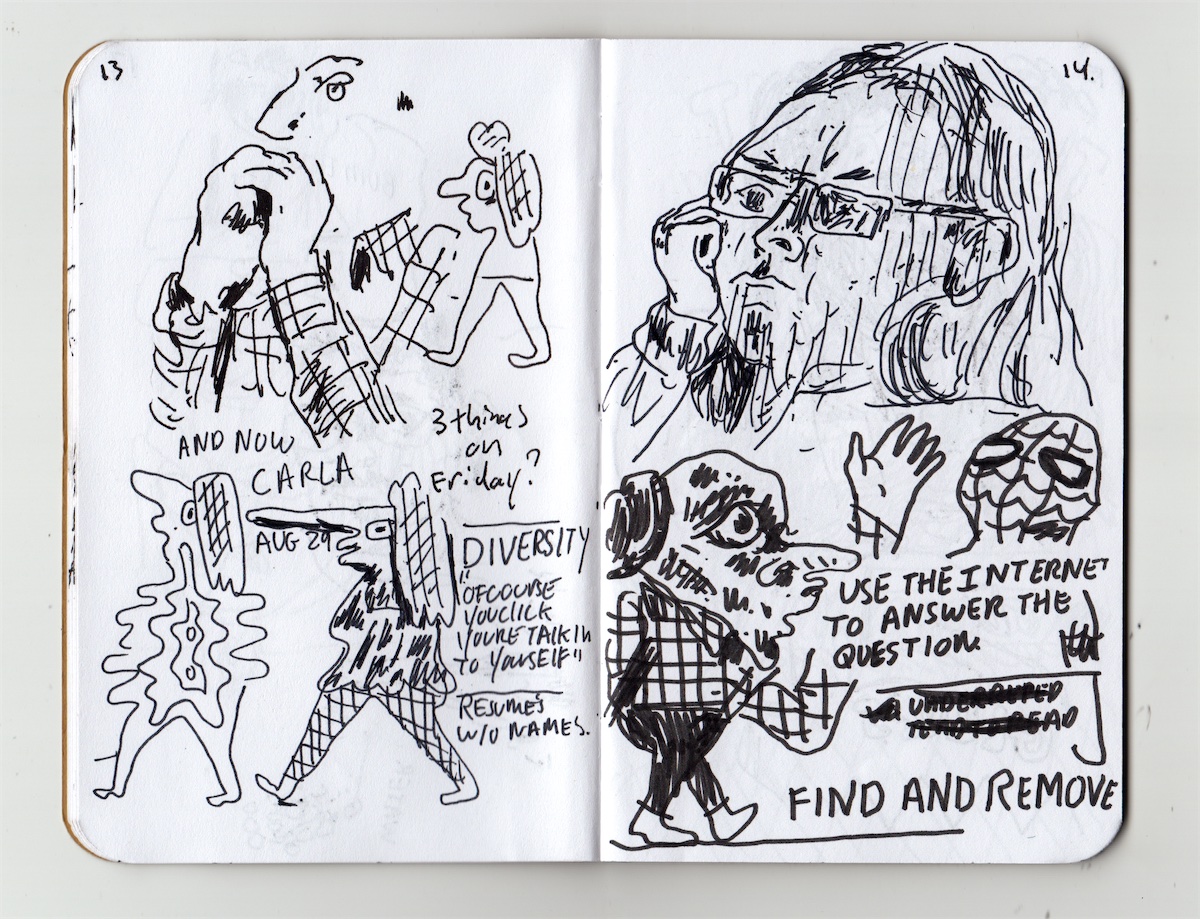 13
AND NOW
CARLA
3 things
on
Friday?
AUG 29
DIVERSITY
"OFCOURSE
YOU CLICK
YOU'RE TALKIN
TO YOURSELF"
RESUME'S
W/O NAMES.
14.
USE THE INTERNET
TO ANSWER THE
QUESTION.
FIND AND REMOVE